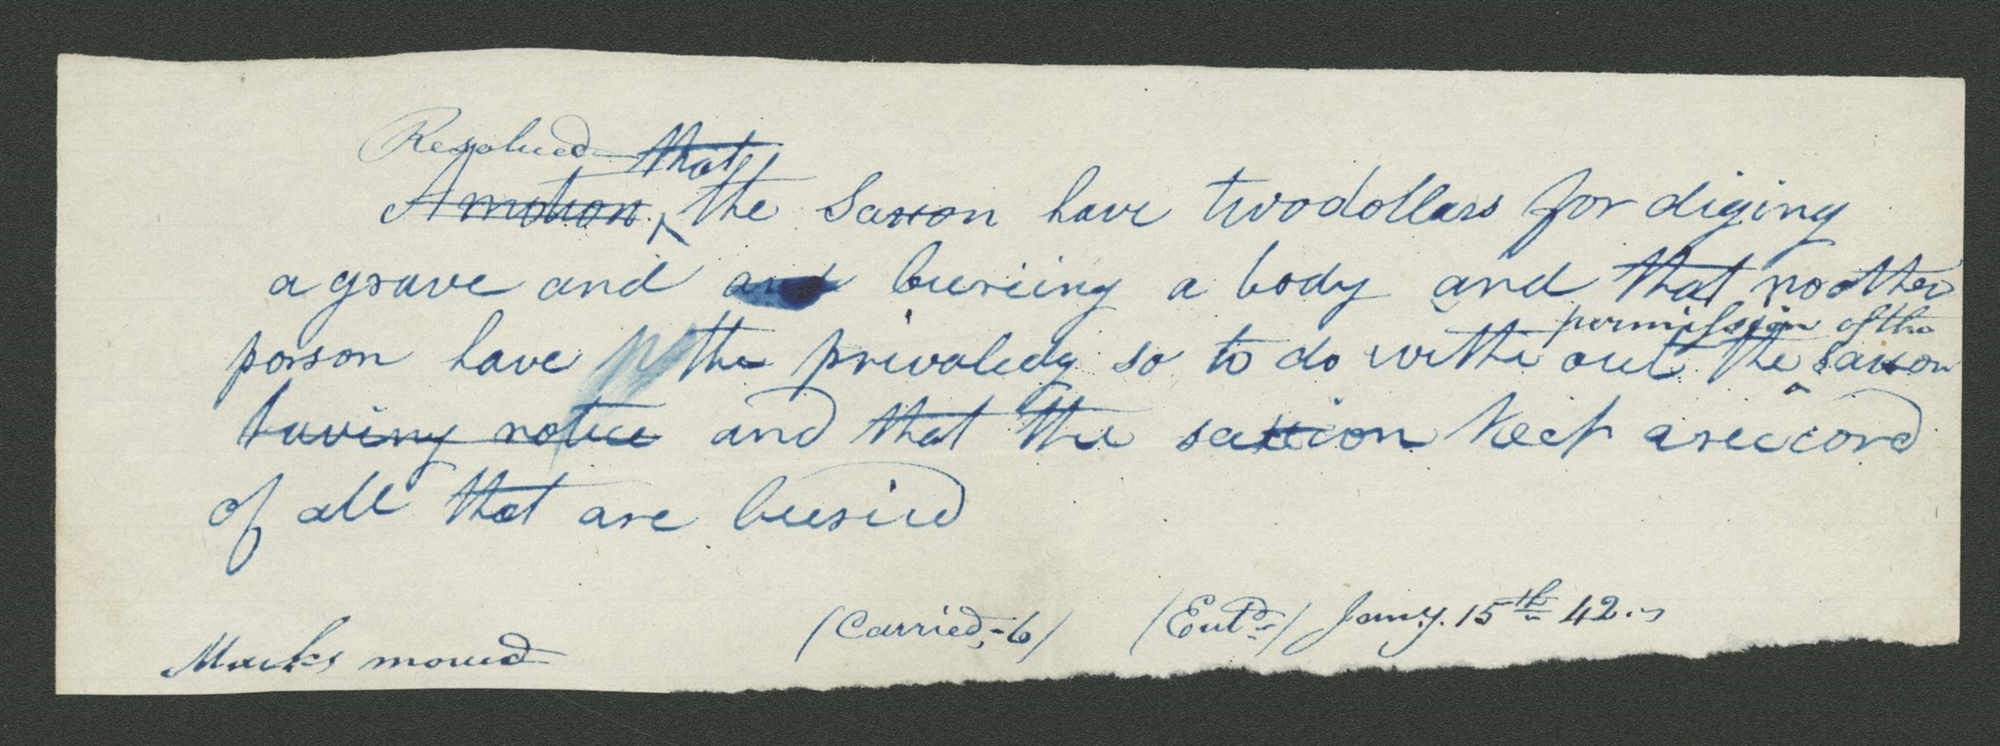 Resolved that
A motion, the Saxon have two dollars for diging
a grave and and buriing a body and that no other
permission of the
porson have the privaledg so to do withe out the saxon
having notice and that the saxion keep a reccord
of all that are buried
(Carried,-6) (Entd) Jany. 15th 42.
Marks moved